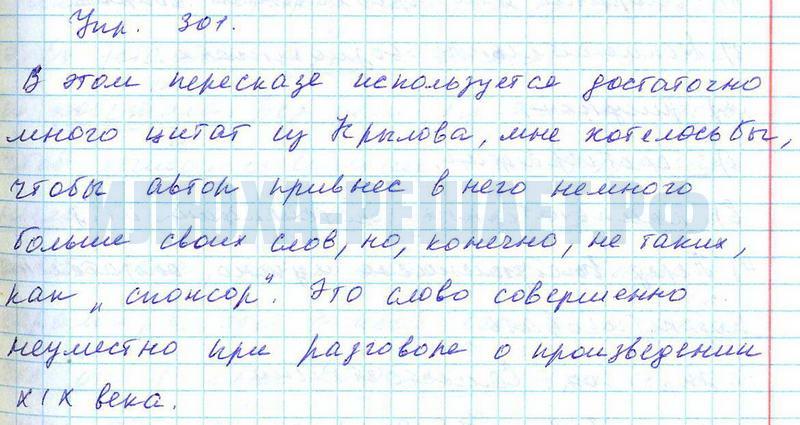 Упр. 301.
В этом пересказе используется достаточно
много цитат из Крылова, мне хотелось бы,
чтобы автор привнес в него немного
больше своих слов, но, конечно, не таких,
как „спонсор“. Это слово совершенно
неуместно при разговоре о произведении
XIX века.
ИЛЮХА-РЕШАЕТ.РФ